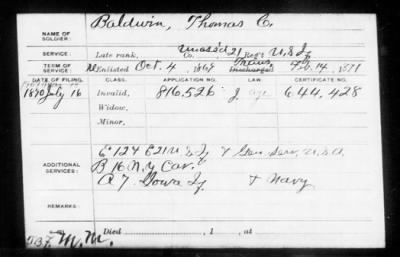 NAME OF SOLDIER: Baldwin, Thomas C.
SERVICE: Late rank, Unass'd 21 Co., Reg't U.S. If
TERM OF SERVICE: Enlisted Oct. 4, 1869 Discharged Feb. 14, 1871
DATE OF FILING. CLASS. APPLICATION NO. CERTIFICATE NO.
1890 July 16 Invalid, 816.526 644.428
Widow,
Minor,
ADDITIONAL SERVICES: E 124 & Gen Serv. U.S.A.
B 16 N.Y. Cav. &
A 7 Iowa If & Navy
REMARKS:
M.M. Died , 1 , at